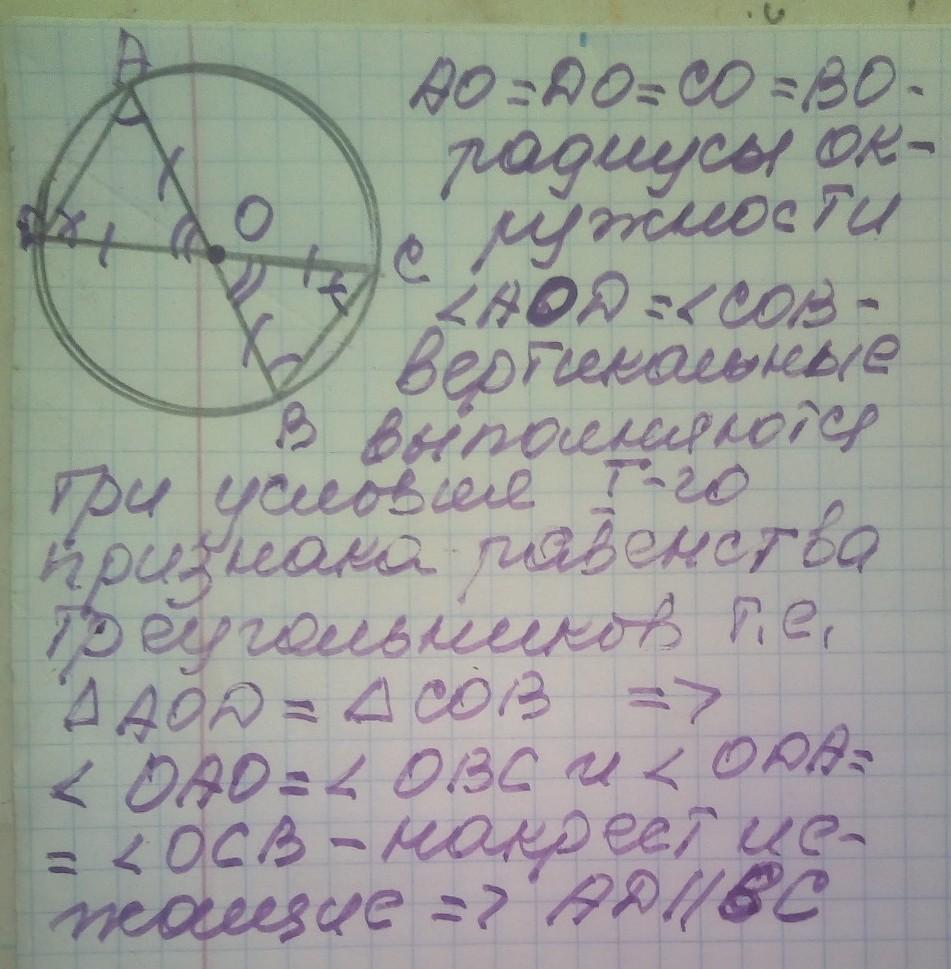 A
D
O
C
B
AO = DO = CO = BO -
радиусы ок-
ружности
∠AOD = ∠COB -
вертикальные
выполняются
три условия I-го
признака равенства
треугольников т.е.
△AOD = △COB =>
∠OAO = ∠OBC и ∠ODA =
= ∠OCB - накрест ле-
жащие => AD || BC